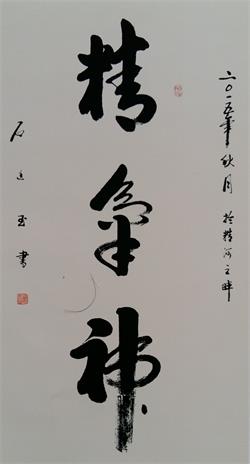 二〇一五年秋月於精河之畔
精氣神
石玉書